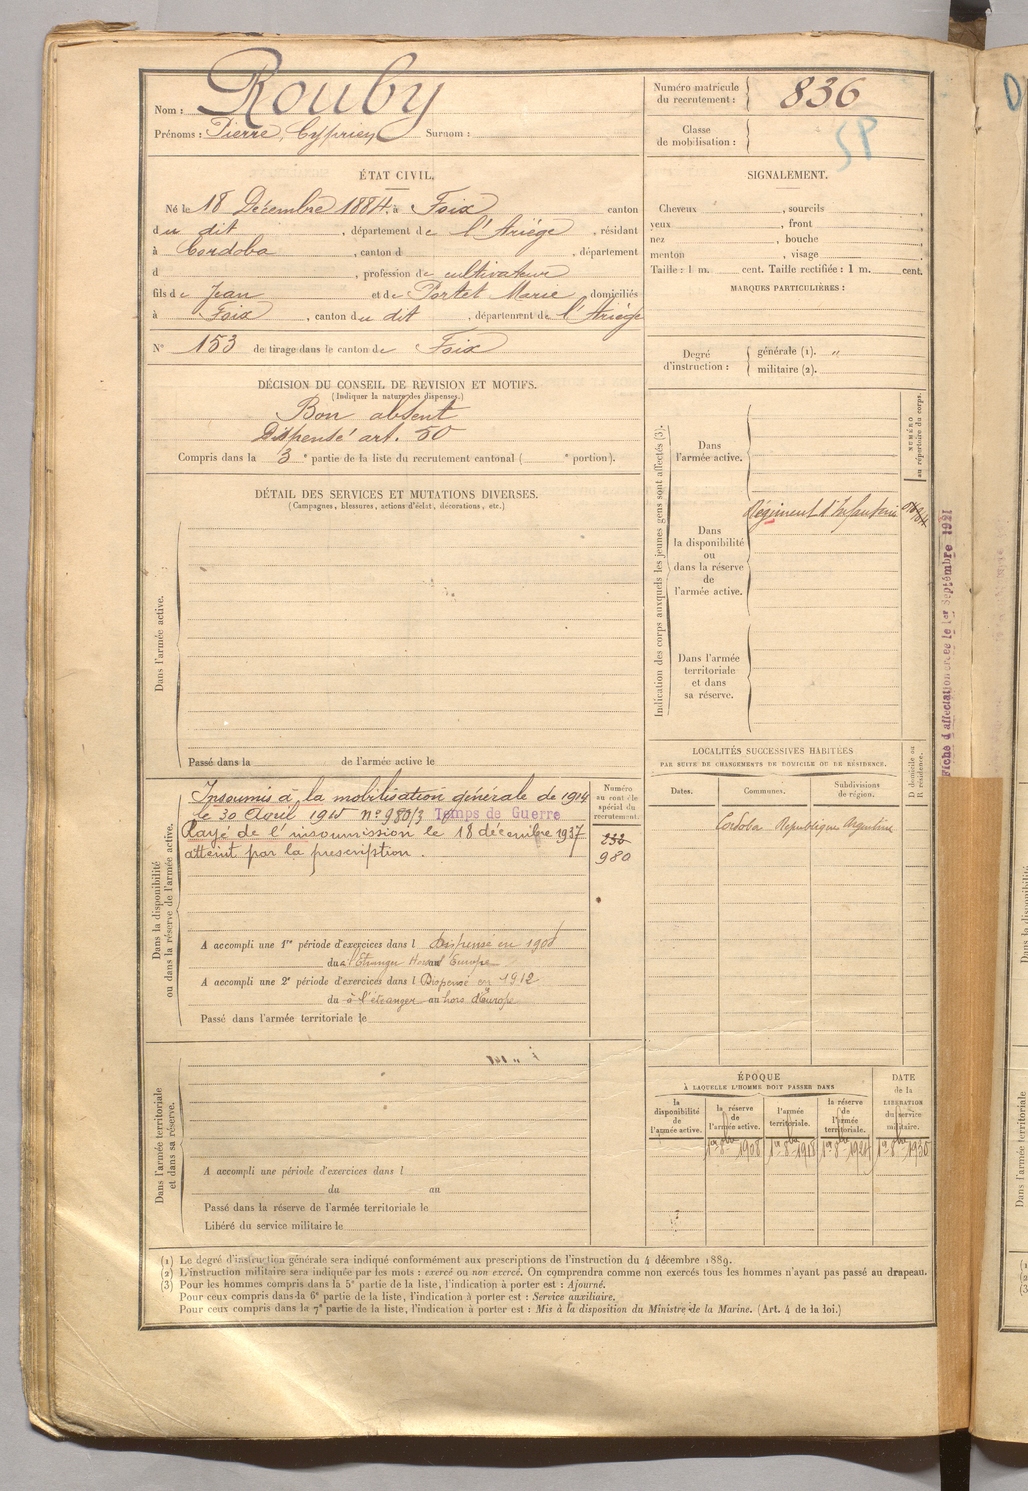 Nom : Rouby
Prénoms : Pierre, Cyprien Surnom :
Numéro matricule du recrutement : 836
Classe de mobilisation :
SP
ÉTAT CIVIL.
Né le 18 Décembre 1884, à Foix canton
du dit, département de l'Ariège, résidant
à Cordoba, canton d , département
d , profession de cultivateur
fils de Jean et de Portet Marie, domiciliés
à Foix, canton du dit, département de l'Ariège
N° 153 de tirage dans le canton de Foix
SIGNALEMENT.
Cheveux , sourcils ,
yeux , front ,
nez , bouche ,
menton , visage ,
Taille : 1 m. cent. Taille rectifiée : 1 m. cent.
MARQUES PARTICULIÈRES :
Degré d'instruction : générale (1). "
militaire (2).
DÉCISION DU CONSEIL DE REVISION ET MOTIFS.
(Indiquer la nature des dispenses.)
Bon absent
Dispensé art. 50
Compris dans la 3e partie de la liste du recrutement cantonal ( e portion).
DÉTAIL DES SERVICES ET MUTATIONS DIVERSES.
(Campagnes, blessures, actions d'éclat, décorations, etc.)
Dans l'armée active.
Passé dans la de l'armée active le
Indication des corps auxquels les jeunes gens sont affectés (3).
NUMÉRO au répertoire du corps.
Dans l'armée active.
Régiment d'Infanterie
Dans la disponibilité ou dans la réserve de l'armée active.
Dans l'armée territoriale et dans sa réserve.
Fiche d'affectation créée le 1er Septembre 1921
Dans la disponibilité ou dans la réserve de l'armée active.
Insoumis à la mobilisation générale de 1914
le 30 Avril 1915 n° 980/3 Temps de Guerre
Rayé de l'insoumission le 18 décembre 1937
atteint par la prescription.
Numéro au contrôle spécial du recrutement.
232
980
A accompli une 1re période d'exercices dans l dispensé en 1908
du à l'Etranger Hors au d'Europe
A accompli une 2e période d'exercices dans l Dispensé en 1912
du à l'étranger au hors d'Europe
Passé dans l'armée territoriale le
LOCALITÉS SUCCESSIVES HABITÉES
PAR SUITE DE CHANGEMENTS DE DOMICILE OU DE RÉSIDENCE.
Dates. Communes. Subdivisions de région. D domicile ou R résidence.
Cordoba République Argentine
Dans l'armée territoriale et dans sa réserve.
A accompli une période d'exercices dans l
du au
Passé dans la réserve de l'armée territoriale le
Libéré du service militaire le
ÉPOQUE
À LAQUELLE L'HOMME DOIT PASSER DANS
la disponibilité de l'armée active. la réserve de l'armée active. l'armée territoriale. la réserve de l'armée territoriale.
DATE de la LIBÉRATION du service militaire.
1er 8bre 1908 1er 8bre 1918 1er 8bre 1924 1er 8bre 1930
(1) Le degré d'instruction générale sera indiqué conformément aux prescriptions de l'instruction du 4 décembre 1889.
(2) L'instruction militaire sera indiquée par les mots : exercé ou non exercé. On comprendra comme non exercés tous les hommes n'ayant pas passé au drapeau.
(3) Pour les hommes compris dans la 5e partie de la liste, l'indication à porter est : Ajourné.
Pour ceux compris dans la 6e partie de la liste, l'indication à porter est : Service auxiliaire.
Pour ceux compris dans la 7e partie de la liste, l'indication à porter est : Mis à la disposition du Ministre de la Marine. (Art. 4 de la loi.)